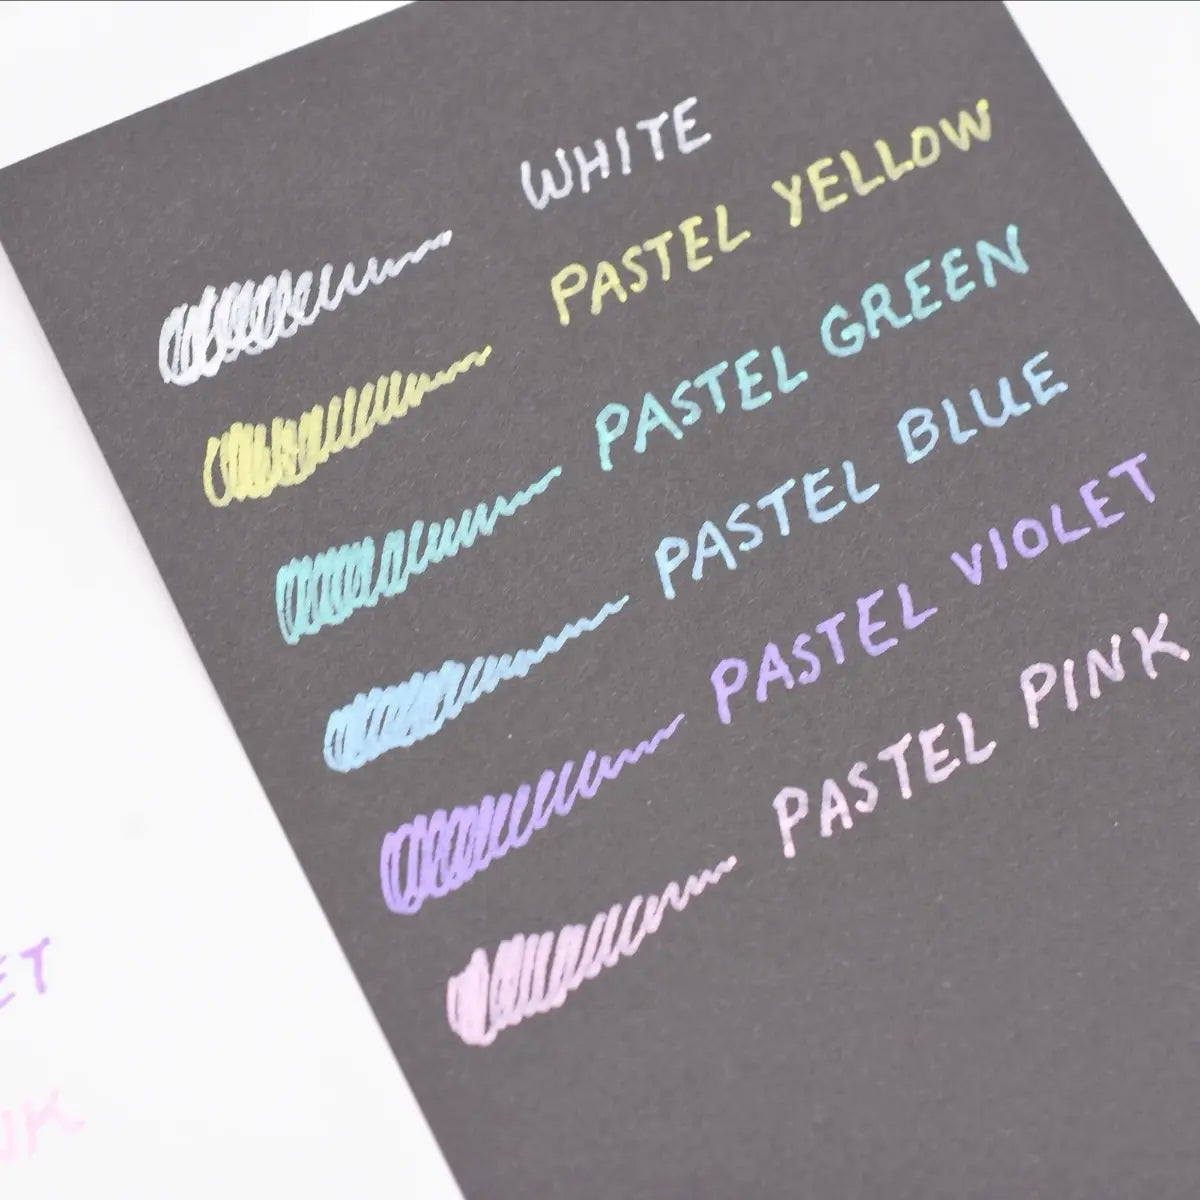 WHITE
PASTEL YELLOW
PASTEL GREEN
PASTEL BLUE
PASTEL VIOLET
PASTEL PINK